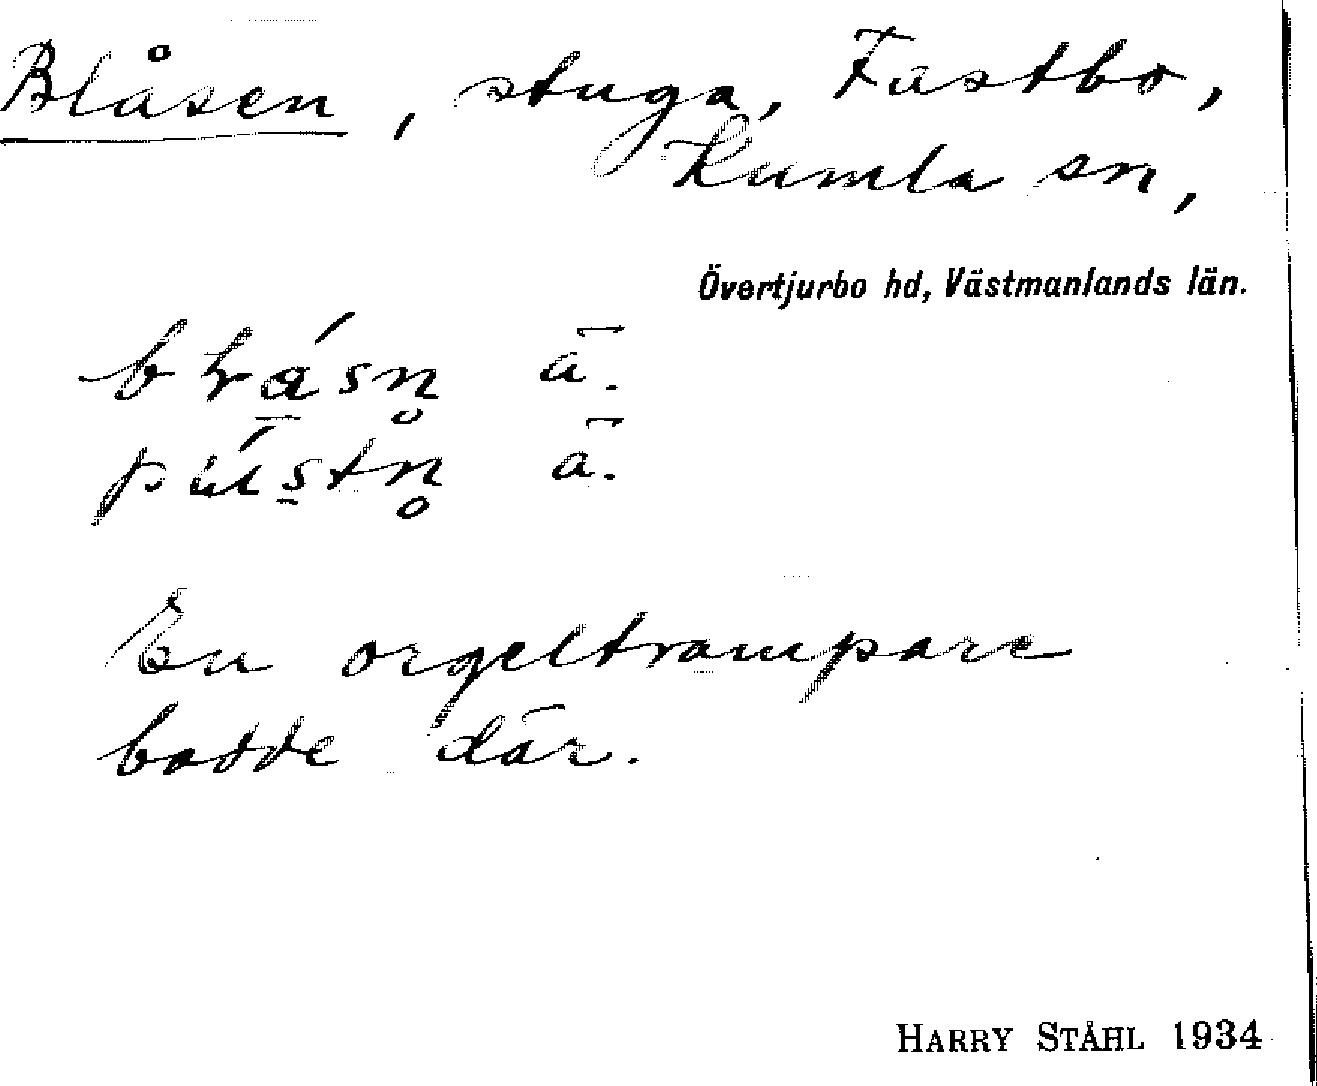 Blåsen, stuga, Fastbo,
Kumla sn,
Övertjurbo hd, Västmanlands län.
ä.
ä.
En orgeltrampare
bodde där.
HARRY STÅHL 1934